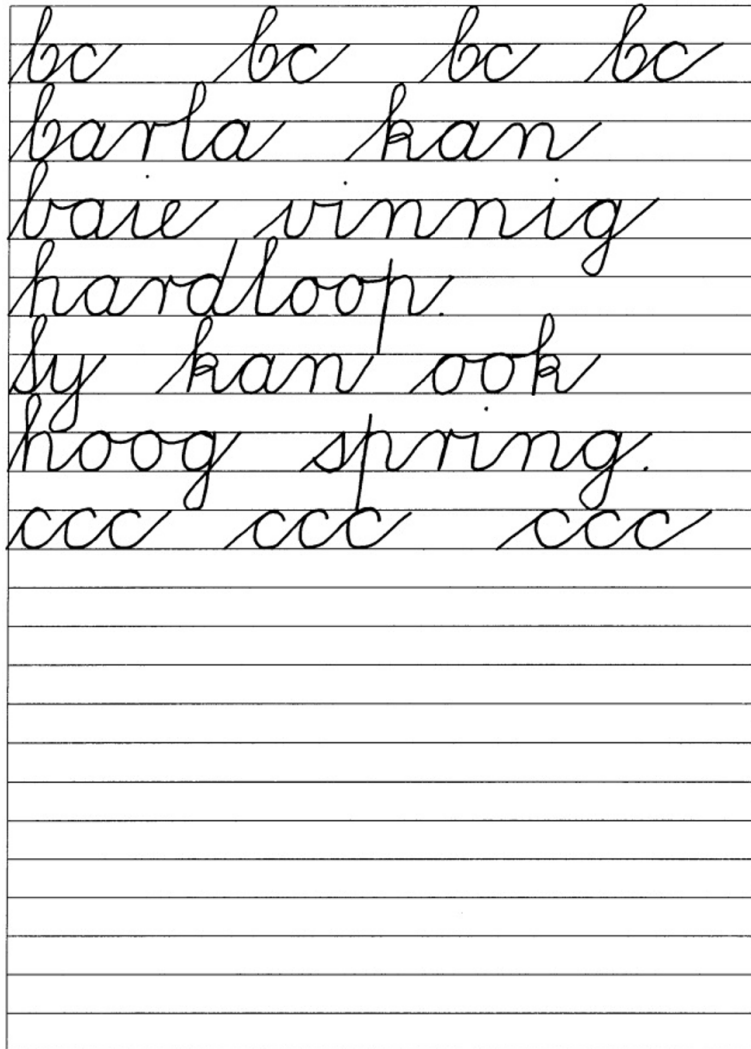 bc bc bc bc
barla kan
baie vinnig
hardloop.
Sy kan ook
hoog spring.
ccc ccc ccc